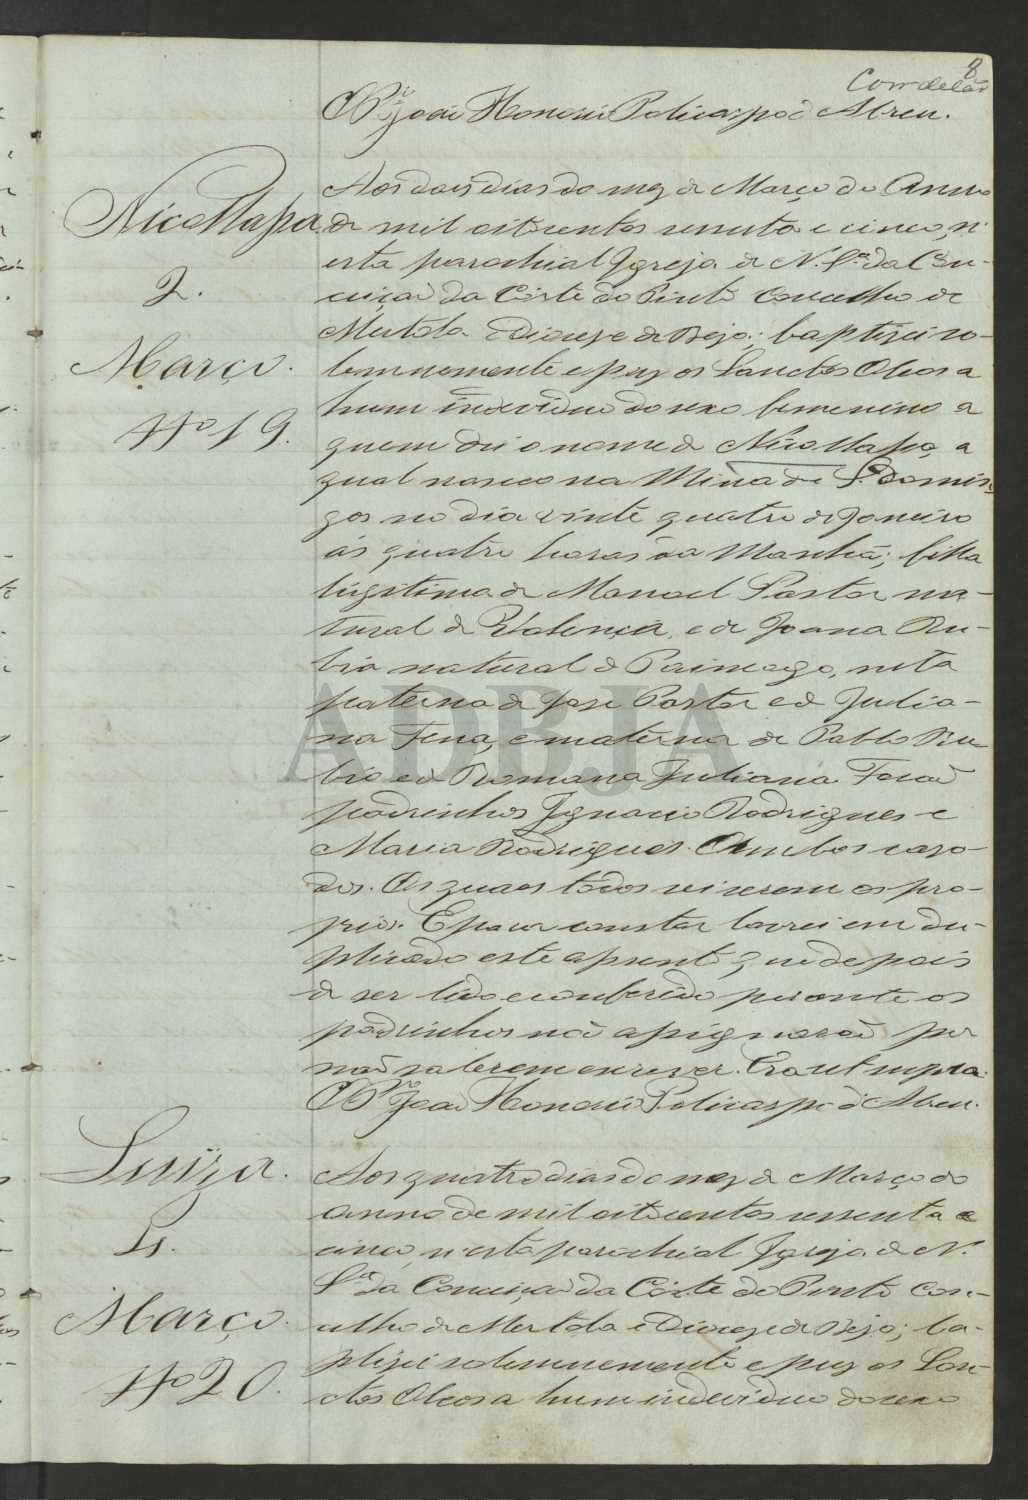 8
Corrdelaõ
O Pr. João Honorio Policarpo d'Abreu.
Nicollasa
2.
Março.
Nº 19.
Aos dois dias do mez de Março do Anno
de mil oitocentos sessenta e cinco, n'
esta parochial Igreja de N. Srª da Con-
ceição da Côrte do Pinto Concelho de
Mertola e Diocese de Beja; baptizei so-
lemnemente e puz os Sanctos Oleos a
hum individuo do sexo femenino a
quem dei o nome de Nicollasa, a
qual nasceo na Mina de S. Domin-
gos no dia vinte quatro de Janeiro
ás quatro horas da Manhã; filha
legitima de Manoel Pastor na-
tural de Valença, e de Joana Ru-
bia natural de Paimogo, neta
paterna de José Pastor e de Julia-
na Fena, e materna de Pablo Ru-
bio e de Romana Juliana Foraõ
padrinhos Ignacio Rodrigues e
Maria Rodrigues. Ambos casa-
dos. Os quaes todos sei serem os pro-
prios. E para constar lavrei em du-
plicado este assento, que depois
de ser lido e conferido perante os
padrinhos naõ assignaraõ por
naõ saberem escrever. Era ut supra.
O Pr. João Honorio Policarpo d'Abreu.
Luiza.
4.
Março.
Nº 20.
Aos quatro dias do mez de Março do
anno de mil oitocentos sessenta e
cinco, n'esta parochial Igreja de N.
Srª da Conceição da Côrte do Pinto con-
celho de Mertola e Diocese de Beja; ba-
ptizei solemnemente e puz os San-
ctos Oleos a hum individuo do sexo
ADBJA